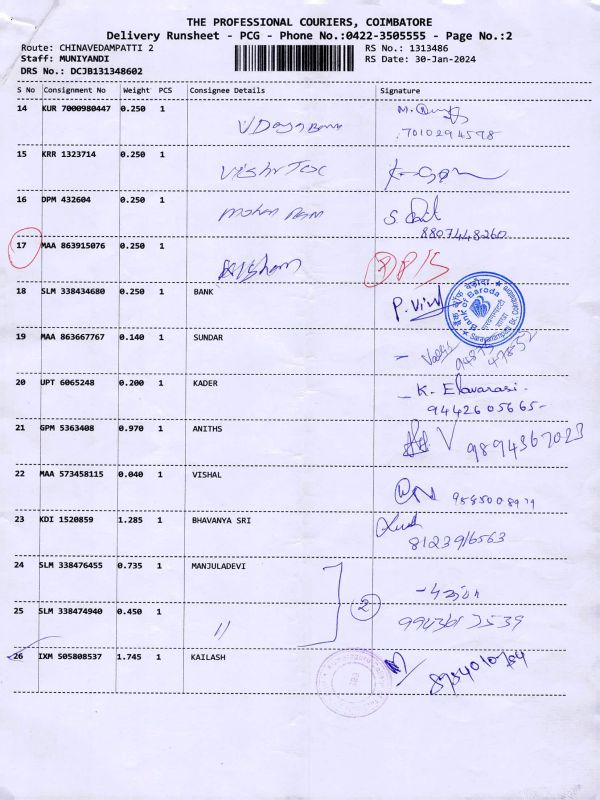 THE PROFESSIONAL COURIERS, COIMBATORE
Delivery Runsheet - PCG - Phone No.:0422-3505555 - Page No.:2
Route: CHINAVEDAMPATTI 2 RS No.: 1313486
Staff: MUNIYANDI RS Date: 30-Jan-2024
DRS No.: DCJB131348602
S No Consignment No Weight PCS Consignee Details Signature
14 KUR 7000980447 0.250 1
7010294578
15 KRR 1323714 0.250 1
16 DPM 432604 0.250 1 Mohan Ram
8807448260
17 MAA 863915076 0.250 1
18 SLM 338434680 0.250 1 BANK
Bank of Baroda
19 MAA 863667767 0.140 1 SUNDAR
20 UPT 6065248 0.200 1 KADER K. Elavarasi
9442605665-
21 GPM 5363408 0.970 1 ANITHS 9894367023
22 MAA 573458115 0.040 1 VISHAL
23 KDI 1520859 1.285 1 BHAVANYA SRI
24 SLM 338476455 0.735 1 MANJULADEVI
2
25 SLM 338474940 0.450 1 "
26 IXM 505808537 1.745 1 KAILASH